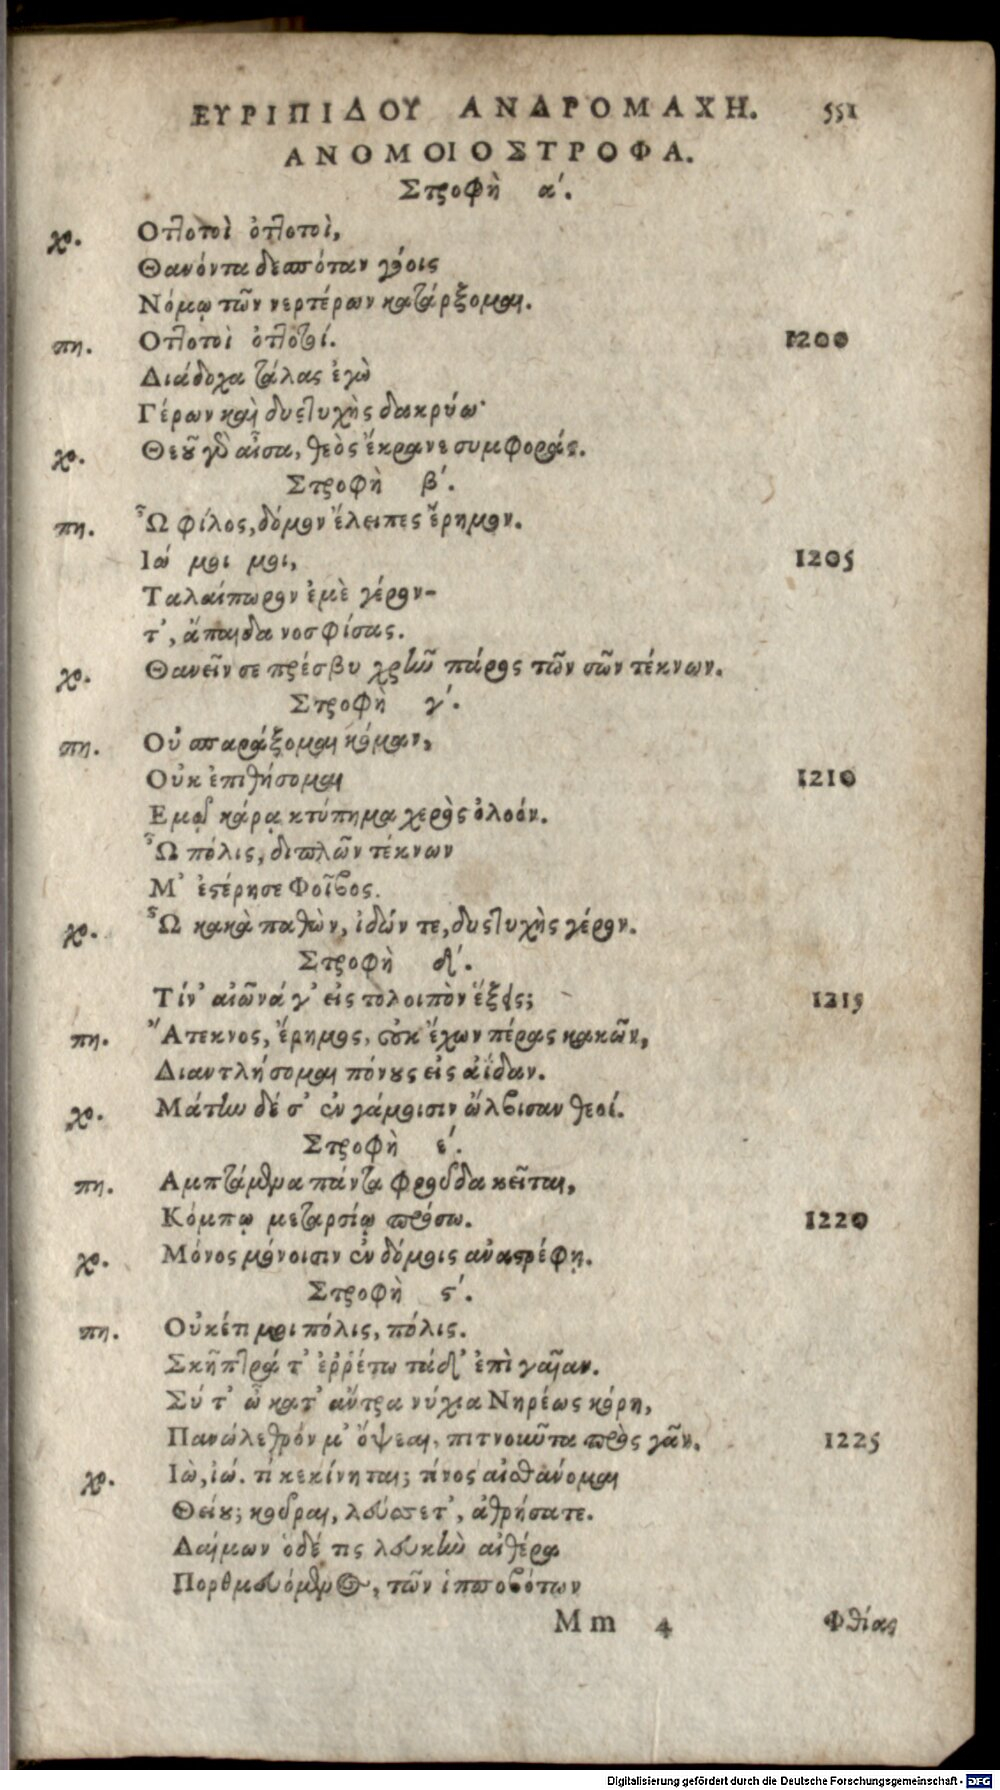 ΕΥΡΙΠΙΔΟΥ ΑΝΔΡΟΜΑΧΗ. 551
ΑΝΟΜΟΙΟΣΤΡΟΦΑ.
Στροφὴ α΄.
χο. Οττοτοὶ ὀττοτοὶ,
Θανόντα δεσπόταν γόοις
Νόμῳ τῶν νερτέρων κατάρξομαι.
πη. Οττοτοὶ ὀττοτοί. 1200
Διάδοχα τάλας ἐγὼ
Γέρων καὶ δυστυχὴς δακρύω·
χο. Θεοῦ γὸ αἶσα, θεὸς ἔκρανε συμφοράς.
Στροφὴ β΄.
πη. Ὦ φίλος, δόμον ἔλειπες ἔρημον.
Ιώ μοι μοι, 1205
Ταλαίπωρον ἐμὲ γέρον-
τ', ἄπαιδα νοσφίσας.
χο. Θανεῖν σε πρέσβυ χρὴν πάρος τῶν σῶν τέκνων.
Στροφὴ γ΄.
πη. Οὐ σπαράξομαι κόμαν,
Οὐκ ἐπιθήσομαι 1210
Εμῷ κάρᾳ κτύπημα χερὸς ὀλοόν.
Ὦ πόλις, διπλῶν τέκνων
Μ' ἐστέρησε Φοῖβος.
χο. Ὦ κακὰ παθὼν, ἰδών τε, δυστυχὴς γέρον.
Στροφὴ δ΄.
Τίν' αἰῶνά γ' εἰς τολοιπὸν ἕξεις; 1215
πη. Ἄτεκνος, ἔρημος, οὐκ ἔχων πέρας κακῶν,
Διαντλήσομαι πόνους εἰς ἀΐδαν.
χο. Μάτην δέ σ' ἐν γάμοισιν ὤλβισαν θεοί.
Στροφὴ ε΄.
πη. Αμπτάμενα πάντα φροῦδα κεῖται,
Κόμπῳ μεταρσίῳ πρόσω. 1220
χο. Μόνος μόνοισιν ἐν δόμοις ἀναστρέφῃ.
Στροφὴ ϛ΄.
πη. Οὐκέτι μοι πόλις, πόλις.
Σκῆπτρά τ' ἐῤῥέτω τάδ' ἐπὶ γαῖαν.
Σύ τ' ὦ κατ' ἄντρα νύχια Νηρέως κόρη,
Πανώλεθρόν μ' ὄψεαι, πιτνοῦντα πρὸς γᾶν. 1225
χο. Ιὼ, ἰώ. τί κεκίνηται; τίνος αἰσθάνομαι
Θείου; κοῦραι, λεύσσετ', ἀθρήσατε.
Δαίμων ὁδέ τις λευκὴν αἰθέρα
Πορθμευόμενος, τῶν ἱπποβότων
Mm 4 Φθίας
Digitalisierung gefördert durch die Deutsche Forschungsgemeinschaft - DFG